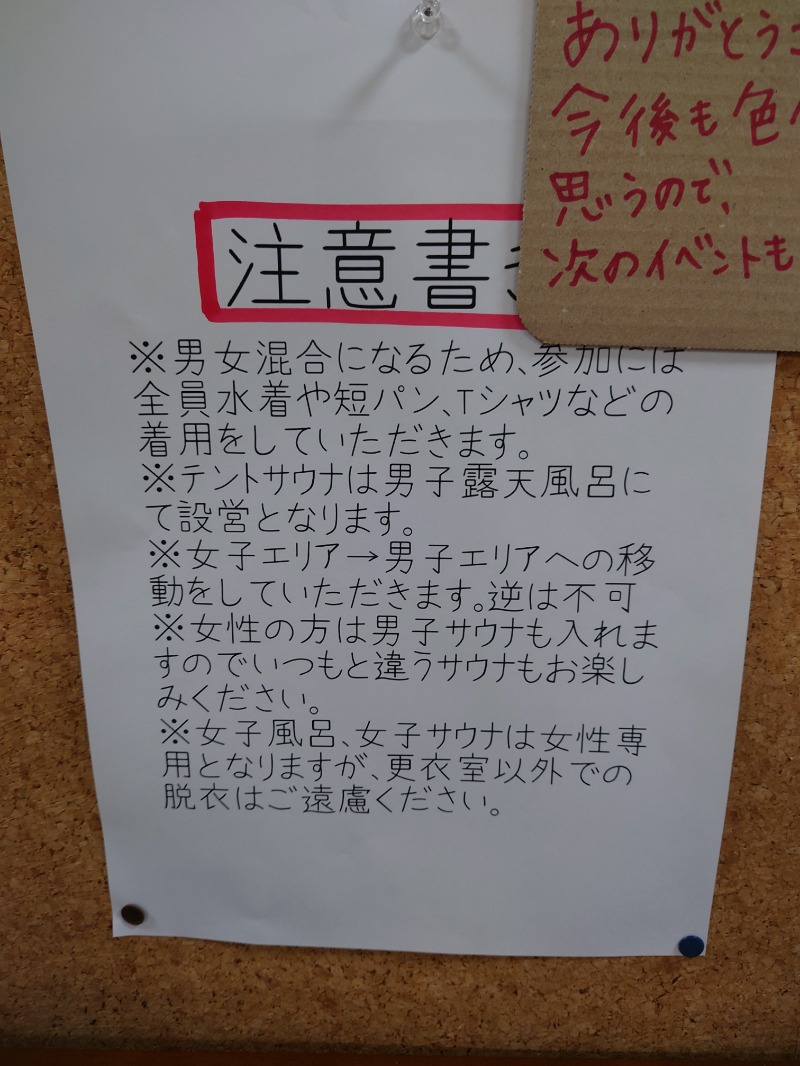 ありがとう
今後も色
思うので、
次のイベントも
注意書
※男女混合になるため、参加には
全員水着や短パン、Tシャツなどの
着用をしていただきます。
※テントサウナは男子露天風呂に
て設営となります。
※女子エリア→男子エリアへの移
動をしていただきます。逆は不可
※女性の方は男子サウナも入れま
すのでいつもと違うサウナもお楽し
みください。
※女子風呂、女子サウナは女性専
用となりますが、更衣室以外での
脱衣はご遠慮ください。